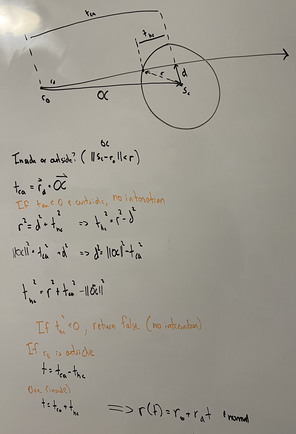 t_ca
t_hc
r
d
r_o
OC
S_c
OC
Inside or outside? (||S_c - r_o|| < r)
t_ca = r_d • OC
If t_ca < 0 & outside, no intersection
r² = d² + t_hc² ⇒ t_hc² = r² - d²
||OC||² = t_ca² + d² ⇒ d² = ||OC||² - t_ca²
t_hc² = r² + t_ca² - ||OC||²
If t_hc² < 0, return false (no intersection)
If r_o is outside
t = t_ca - t_hc
(inside)
t = t_ca + t_hc
⇒ r(t) = r_o + r_d t
normal